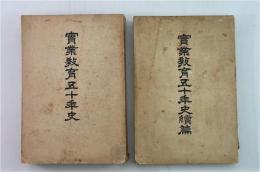 實業敎育五十年史
實業敎育五十年史續篇